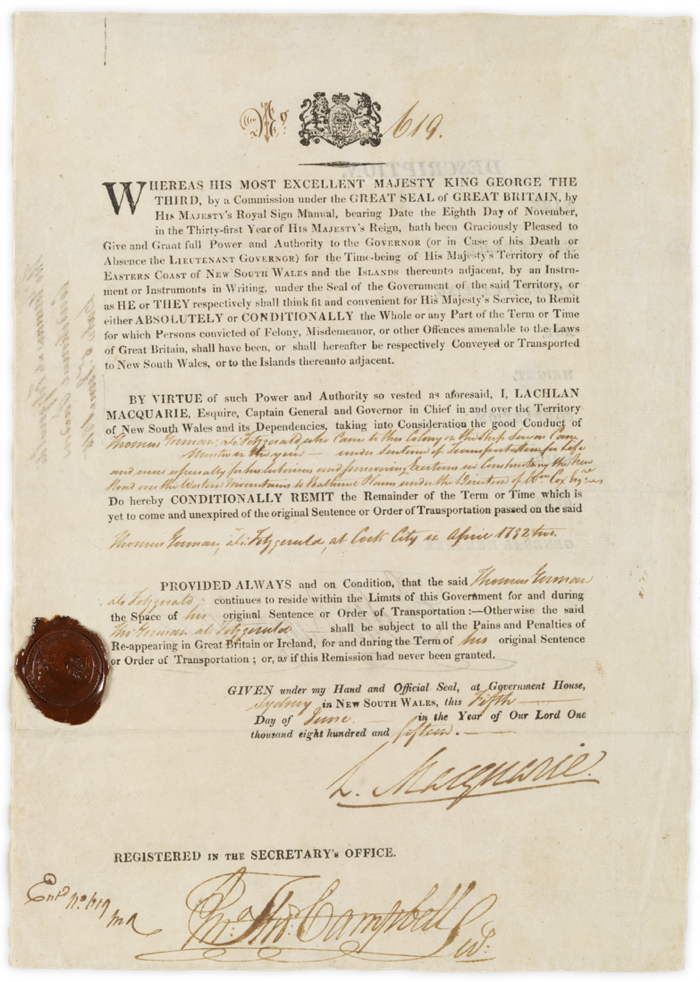 No. 619.
WHEREAS HIS MOST EXCELLENT MAJESTY KING GEORGE THE
THIRD, by a Commission under the GREAT SEAL of GREAT BRITAIN, by
HIS MAJESTY'S Royal Sign Manual, bearing Date the Eighth Day of November,
in the Thirty-first Year of HIS MAJESTY'S Reign, hath been Graciously Pleased to
Give and Grant full Power and Authority to the GOVERNOR (or in Case of his Death or
Absence the LIEUTENANT GOVERNOR) for the Time-being of His Majesty's Territory of the
EASTERN COAST of NEW SOUTH WALES and the ISLANDS thereunto adjacent, by an Instru-
ment or Instruments in Writing, under the Seal of the Government of the said Territory, or
as HE or THEY respectively shall think fit and convenient for His Majesty's Service, to Remit
either ABSOLUTELY or CONDITIONALLY the Whole or any Part of the Term or Time
for which Persons convicted of Felony, Misdemeanor, or other Offences amenable to the Laws
of Great Britain, shall have been, or shall hereafter be respectively Conveyed or Transported
to New South Wales, or to the Islands thereunto adjacent.
BY VIRTUE of such Power and Authority so vested as aforesaid, I, LACHLAN
MACQUARIE, Esquire, Captain General and Governor in Chief in and over the Territory
of New South Wales and its Dependencies, taking into Consideration the good Conduct of
Thomas Gorman, als Fitzgerald who Came to this Colony in the Ship
in the year — under Sentence of Transportation for Life
and more especially for his laborious and persevering exertions in Constructing the New
Road over the Western Mountains to Bathurst Plains under the Direction of Wm Cox Esqre
Do hereby CONDITIONALLY REMIT the Remainder of the Term or Time which is
yet to come and unexpired of the original Sentence or Order of Transportation passed on the said
Thomas Gorman, als Fitzgerald, at Cork City in April 1792
PROVIDED ALWAYS and on Condition, that the said Thomas Gorman
als Fitzgerald — continues to reside within the Limits of this Government for and during
the Space of his original Sentence or Order of Transportation:—Otherwise the said
Thos Gorman als Fitzgerald — shall be subject to all the Pains and Penalties of
Re-appearing in Great Britain or Ireland, for and during the Term of his original Sentence
or Order of Transportation; or, as if this Remission had never been granted.
GIVEN under my Hand and Official Seal, at Government House,
Sydney in NEW SOUTH WALES, this Fifth —
Day of June — in the Year of Our Lord One
thousand eight hundred and fifteen. —
L. Macquarie.
REGISTERED IN THE SECRETARY'S OFFICE.
Entd No. 619
Jno. Thos. Campbell Secy.